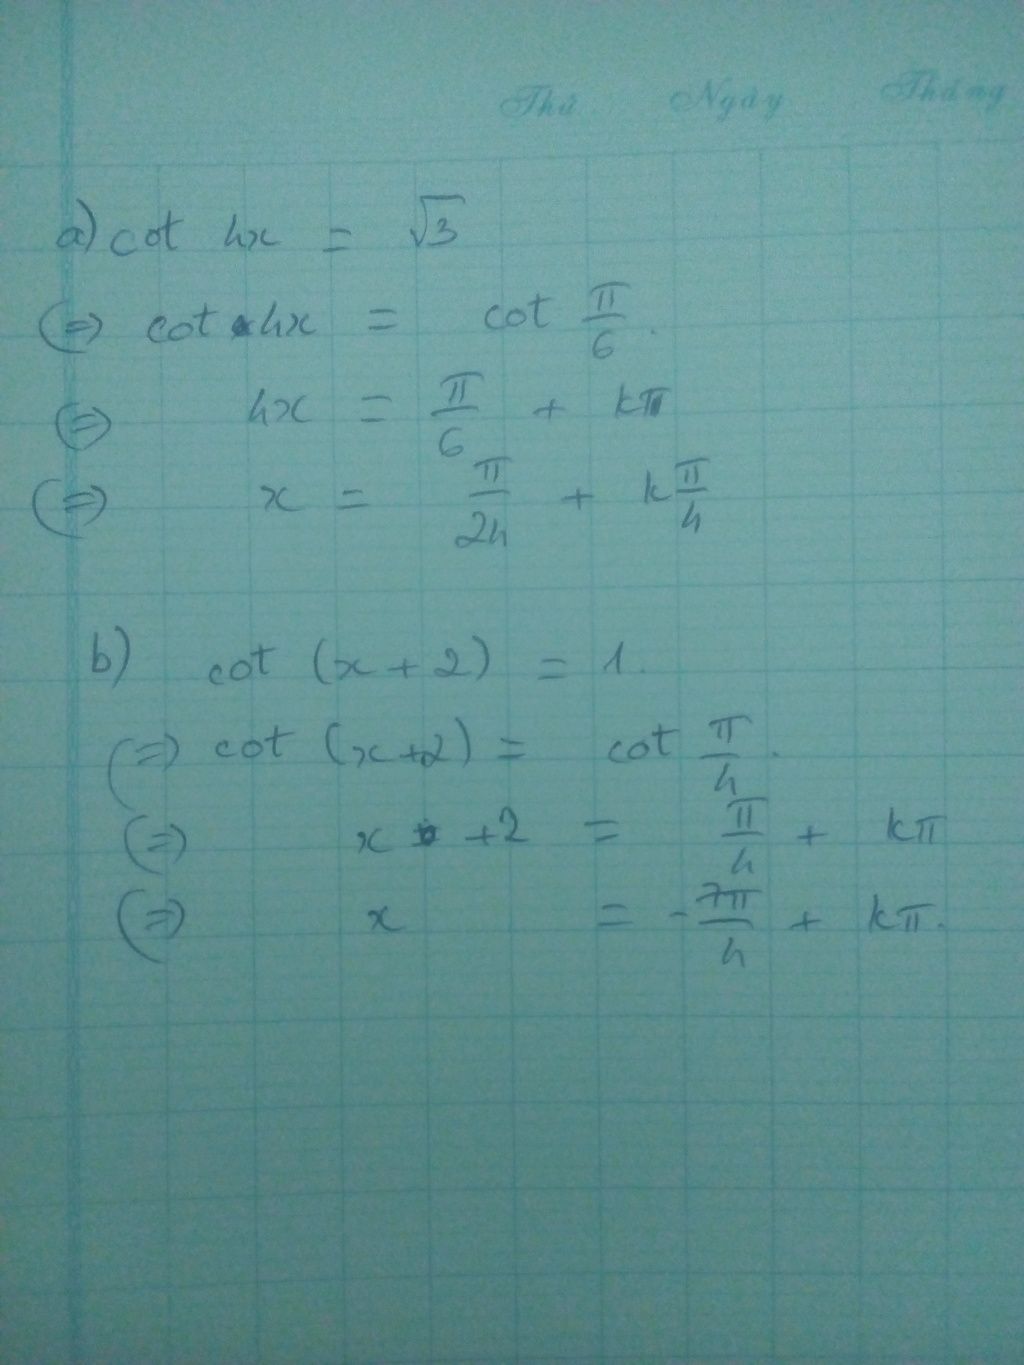 Thứ Ngày Tháng
a) cot 4x = √3
(=) cot 4x = cot π/6.
(=) 4x = π/6 + kπ
(=) x = π/24 + k π/4
b) cot (x + 2) = 1.
(=) cot (x+2) = cot π/4.
(=) x +2 = π/4 + kπ
(=) x = - 7π/4 + kπ.